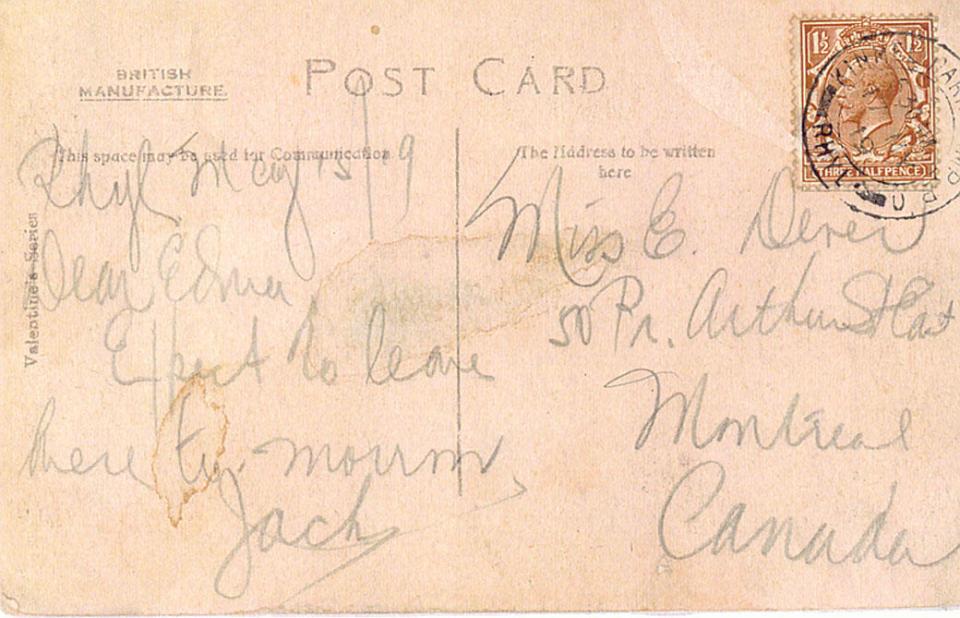 BRITISH
MANUFACTURE.
POST CARD
This space may be used for Communication
The Address to be written
here
Valentine's Series
1½ 1½
THREE HALFPENCE
KINMEL PARK CAMP
RHYL
19
Rhyl May 15/19
Dear Edna
Expect to leave
here to-mourn
Jack
Miss E. Dever
50 Pr. Arthur St East
Montreal
Canada